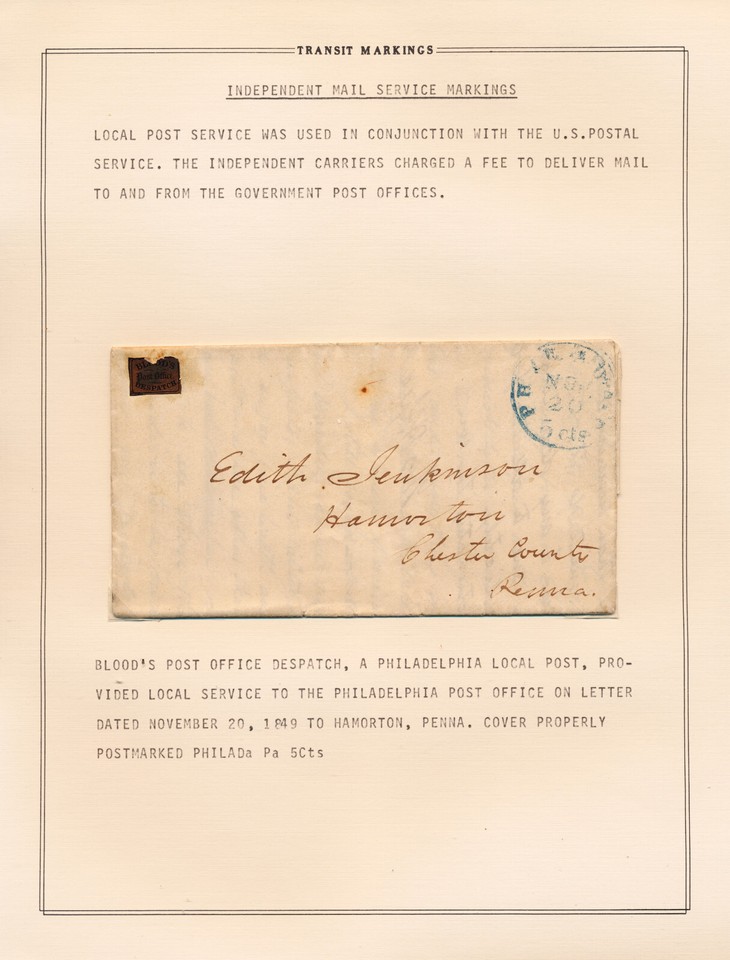 TRANSIT MARKINGS
INDEPENDENT MAIL SERVICE MARKINGS
LOCAL POST SERVICE WAS USED IN CONJUNCTION WITH THE U.S.POSTAL
SERVICE. THE INDEPENDENT CARRIERS CHARGED A FEE TO DELIVER MAIL
TO AND FROM THE GOVERNMENT POST OFFICES.
BLOOD'S
Post Office
DESPATCH
NOV
20
5 cts
Edith Jenkinson
Hamorton
Chester County
Penna.
BLOOD'S POST OFFICE DESPATCH, A PHILADELPHIA LOCAL POST, PRO-
VIDED LOCAL SERVICE TO THE PHILADELPHIA POST OFFICE ON LETTER
DATED NOVEMBER 20, 1849 TO HAMORTON, PENNA. COVER PROPERLY
POSTMARKED PHILADa Pa 5Cts